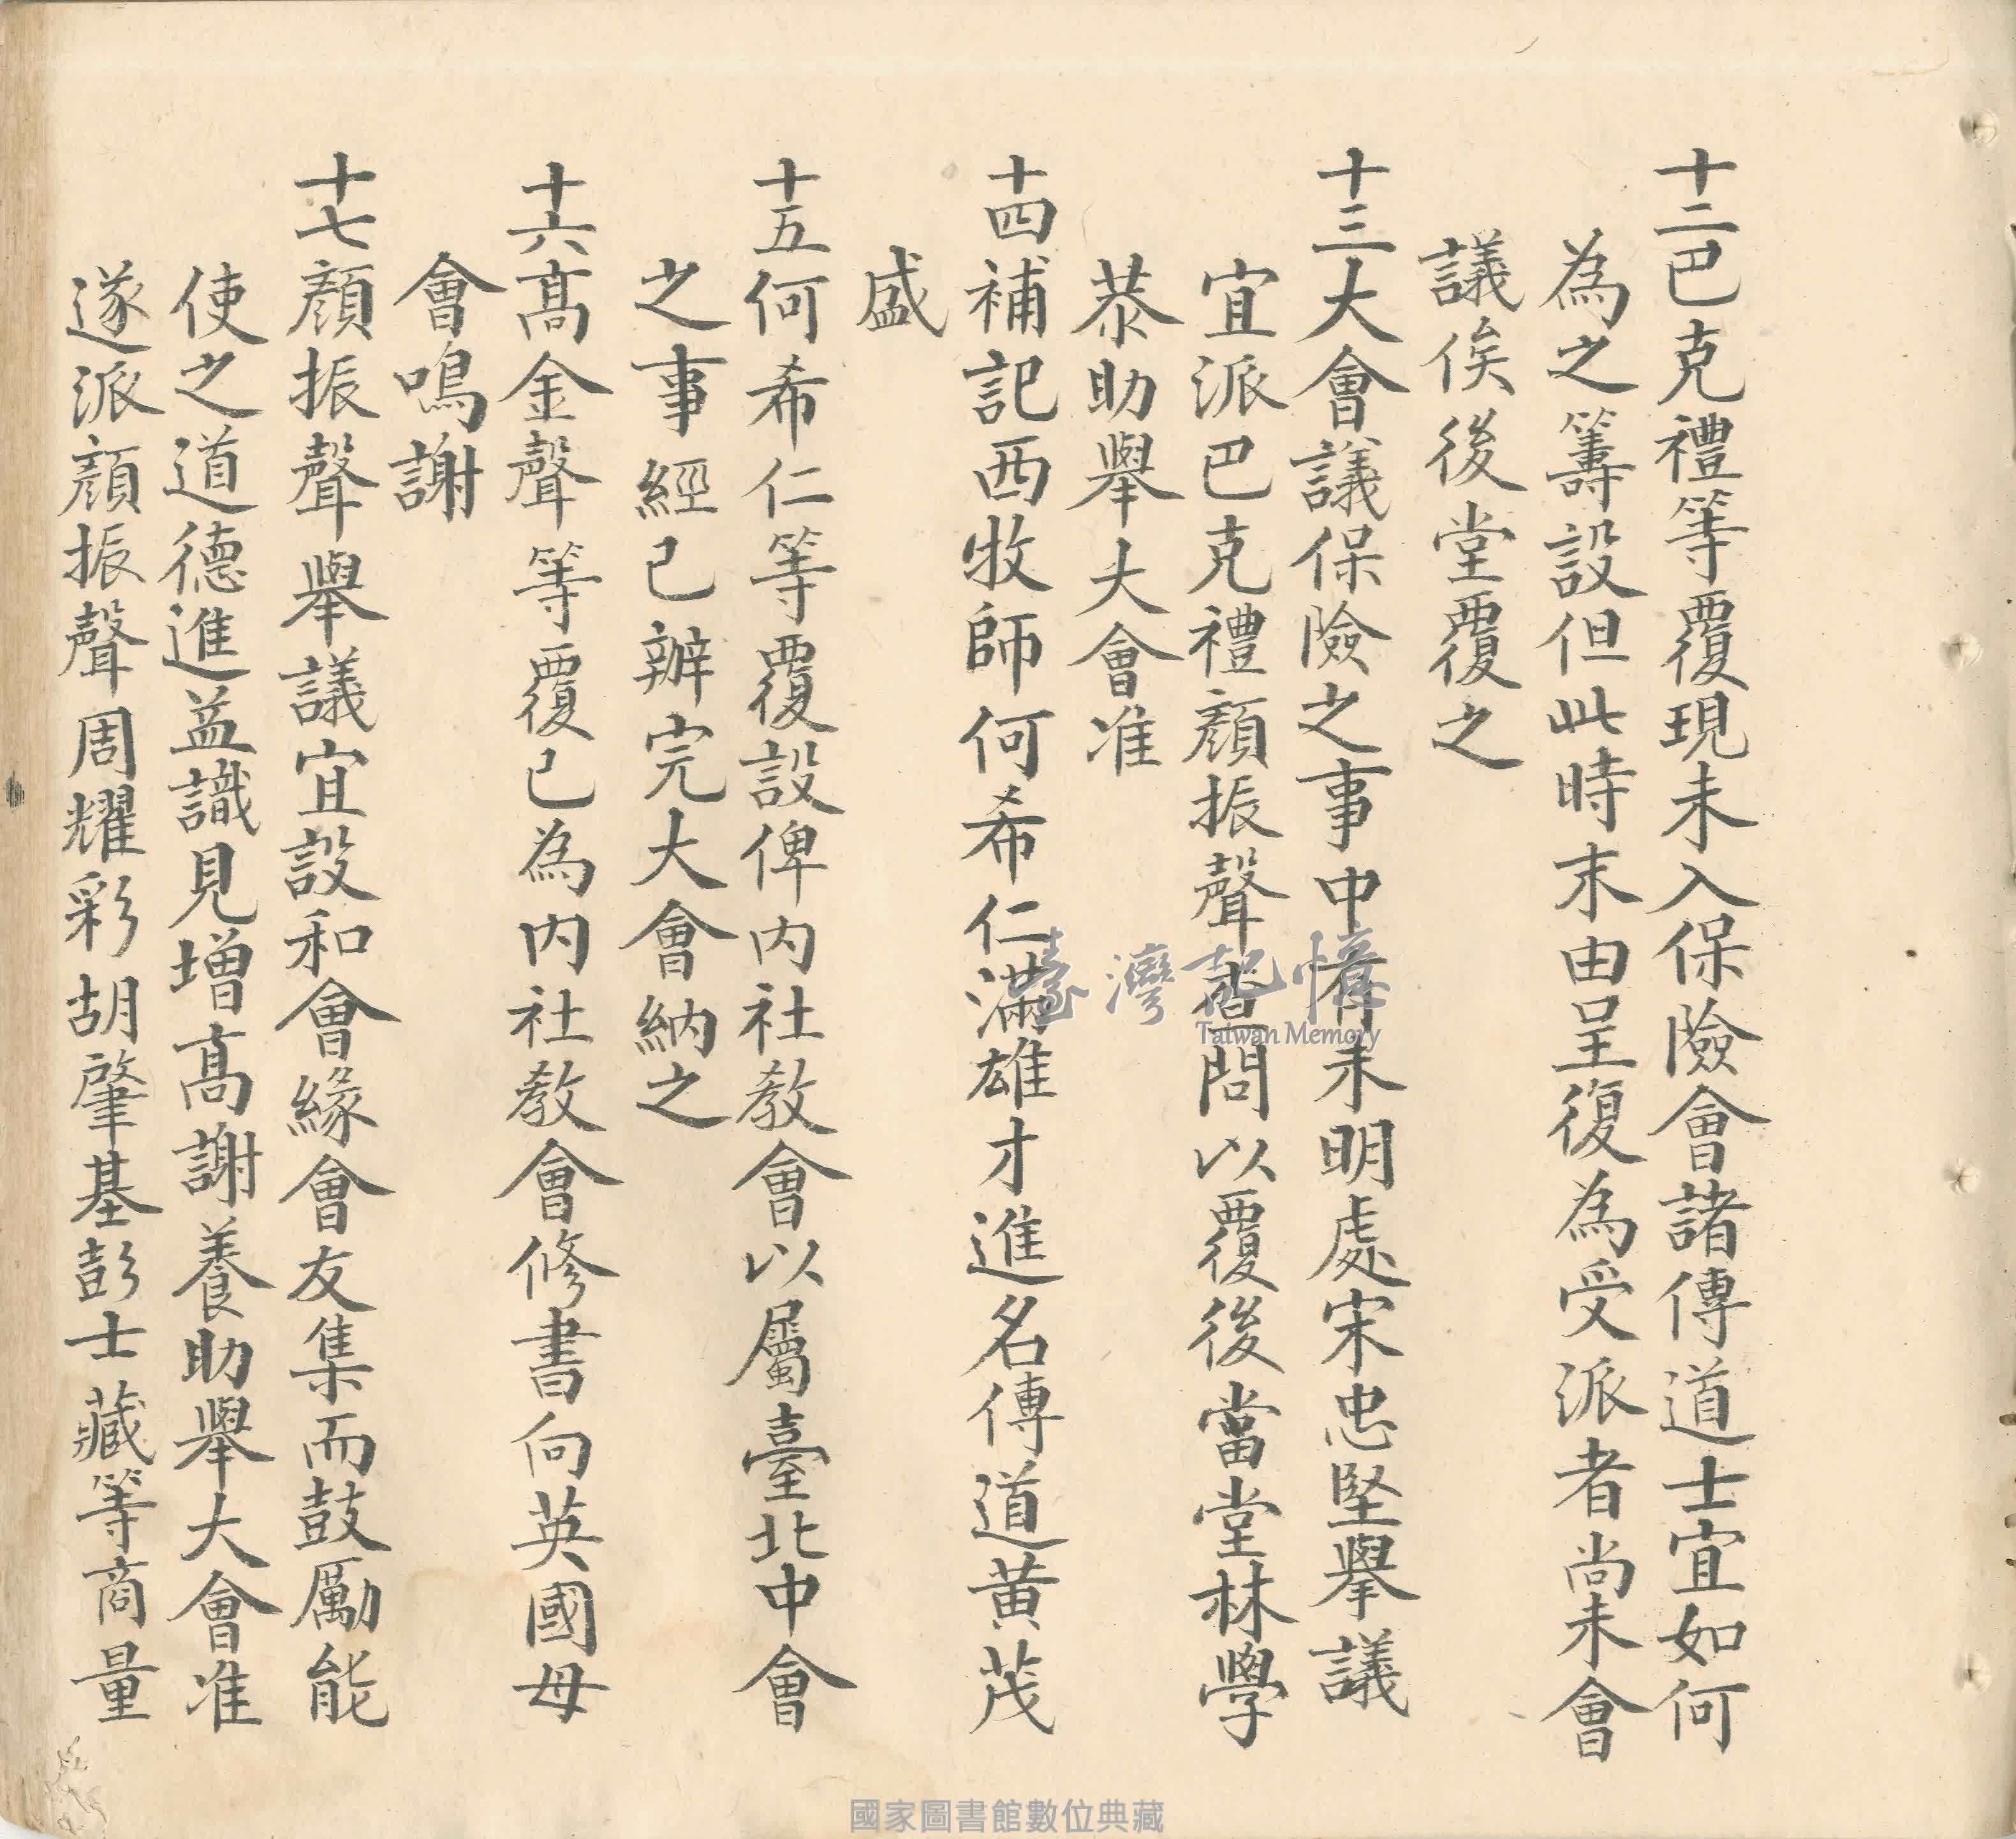 十二巴克禮等覆現未入保險會諸傳道士宜如何
為之籌設但此時末由呈復為受派者尚未會
議俟後堂覆之
十三大會議保險之事中有未明處宋忠堅舉議
宜派巴克禮顏振聲查問以覆後當堂林學
恭助舉大會准
十四補記西牧師何希仁滿雄才進名傳道黃茂
盛
十五何希仁等覆設俾內社教會以屬臺北中會
之事經已辦完大會納之
十六高金聲等覆已為內社教會修書向英國母
會鳴謝
十七顏振聲舉議宜設和會緣會友集而鼓勵能
使之道德進益識見增高謝養助舉大會准
遂派顏振聲周耀彩胡肇基彭士藏等商量
臺灣記憶
Taiwan Memory
國家圖書館數位典藏